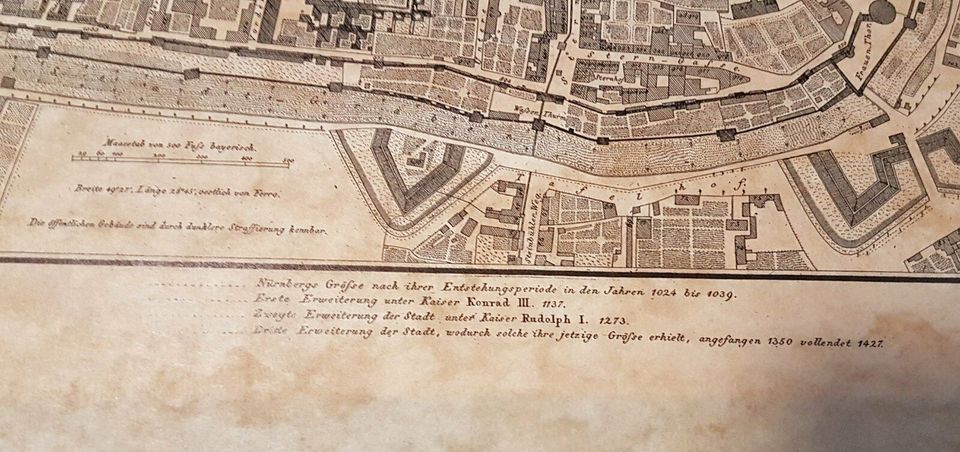 Stern-Gasse
Frauen Thor
Stadt-Graben
Maasstab von 500 Fuss bayerisch.
50 100 200 300 400 500
Breite 49°28', Länge 28°45', oestlich von Ferro.
Die öffentlichen Gebäude sind durch dunklere Straffierung kennbar.
Tafelhof
Steinbühler Weg
Nürnbergs Größe nach ihrer Entstehungsperiode in den Jahren 1024 bis 1039.
Erste Erweiterung unter Kaiser Konrad III. 1137.
Zweyte Erweiterung der Stadt unter Kaiser Rudolph I. 1273.
Dritte Erweiterung der Stadt, wodurch solche ihre jetzige Größe erhielt, angefangen 1350 vollendet 1427.